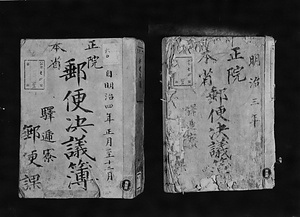 正院
本省
郵便決議簿
自明治四年正月至十二月
驛遞寮
郵便課
明治三年
正院
本省
郵便決議簿